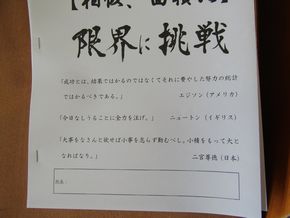 限界に挑戦
「成功とは、結果ではかるのではなくてそれに費やした努力の統計
ではかるべきである。」　エジソン（アメリカ）
「今日なしうることに全力を注げ。」　ニュートン（イギリス）
「大事をなさんと欲せば小事を怠らず勤むべし。小積もって大と
なればなり。」　二宮尊徳（日本）
氏名：